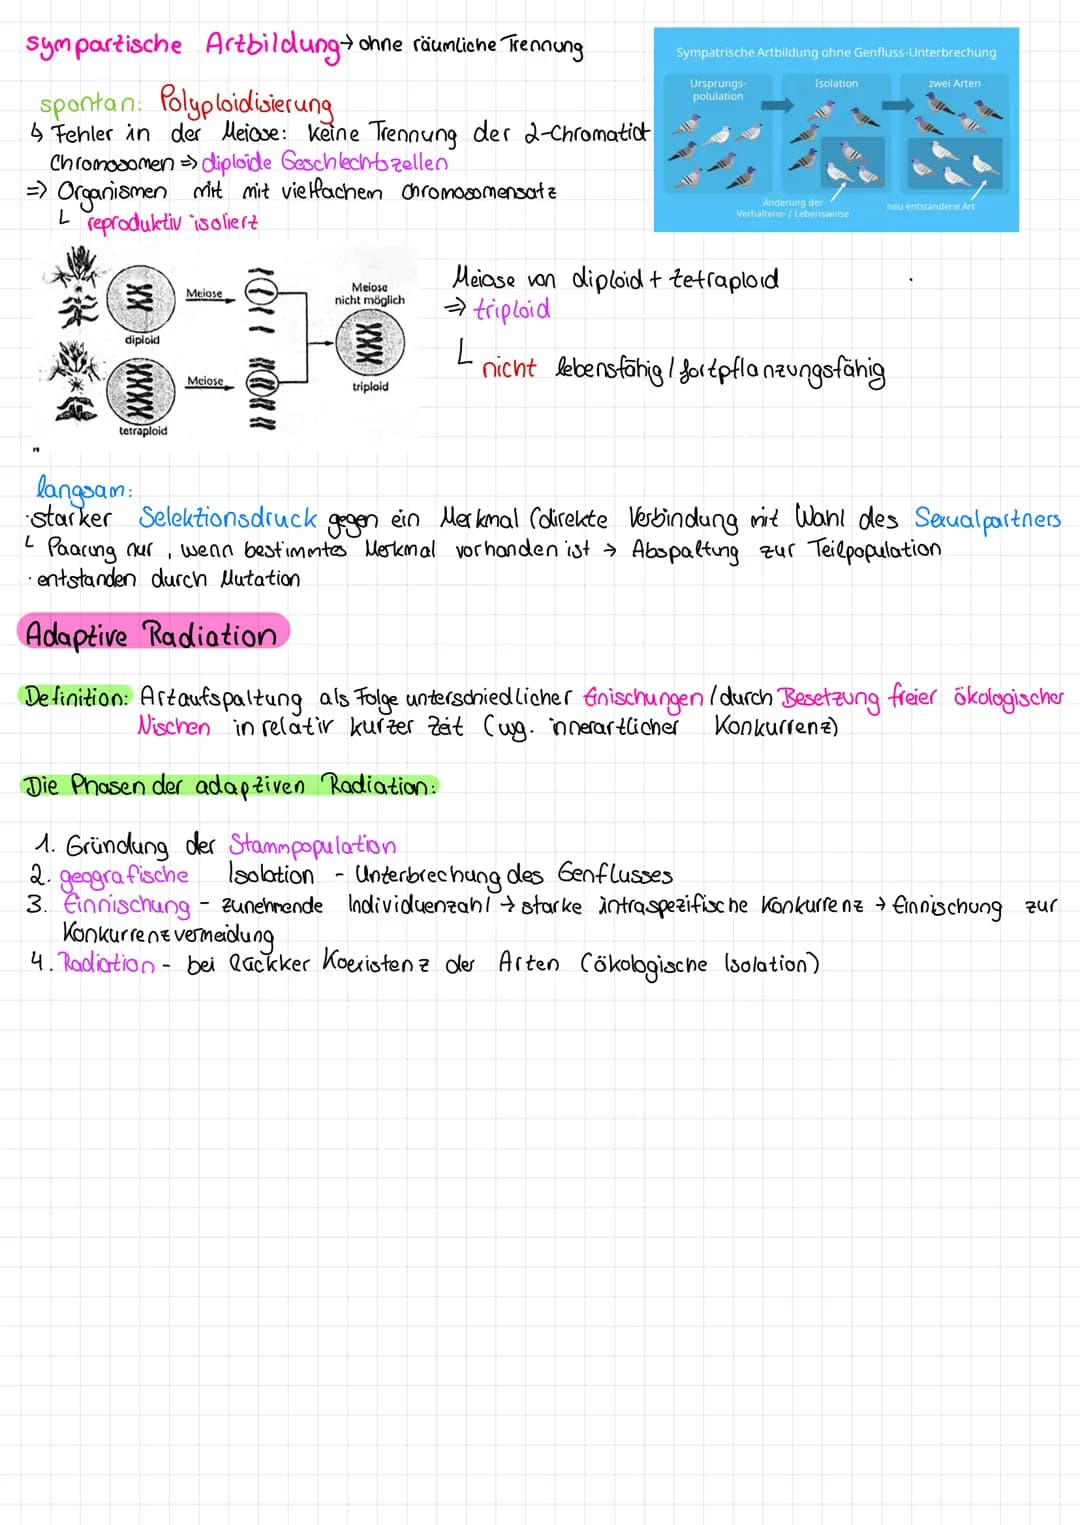 sympartische Artbildung → ohne räumliche Trennung
Sympatrische Artbildung ohne Genfluss-Unterbrechung
Ursprungs-
polulation
Isolation
zwei Arten
Änderung der
Verhaltens- / Lebensweise
neu entstandene Art
spontan: Polyploidisierung
↳ Fehler in der Meiose: keine Trennung der 2-Chromatid
Chromosomen ⇒ diploide Geschlechtszellen
⇒ Organismen mit mit vielfachem Chromosomensatz
└ reproduktiv isoliert
Meiose
diploid
Meiose
tetraploid
Meiose
nicht möglich
triploid
Meiose von diploid + tetraploid
⇒ triploid
└ nicht lebensfähig / fortpflanzungsfähig
langsam:
· starker Selektionsdruck gegen ein Merkmal (direkte Verbindung mit Wahl des Sexualpartners
└ Paarung nur, wenn bestimmtes Merkmal vorhanden ist → Abspaltung zur Teilpopulation
· entstanden durch Mutation
Adaptive Radiation
Definition: Artaufspaltung als Folge unterschiedlicher Einischungen / durch Besetzung freier ökologischer
Nischen in relativ kurzer Zeit (wg. innerartlicher Konkurrenz)
Die Phasen der adaptiven Radiation:
1. Gründung der Stammpopulation
2. geografische Isolation - Unterbrechung des Genflusses
3. Einnischung - zunehmende Individuenzahl → starke intraspezifische Konkurrenz → Einnischung zur
Konkurrenzvermeidung
4. Radiation - bei Rückker Koexistenz der Arten (ökologische Isolation)